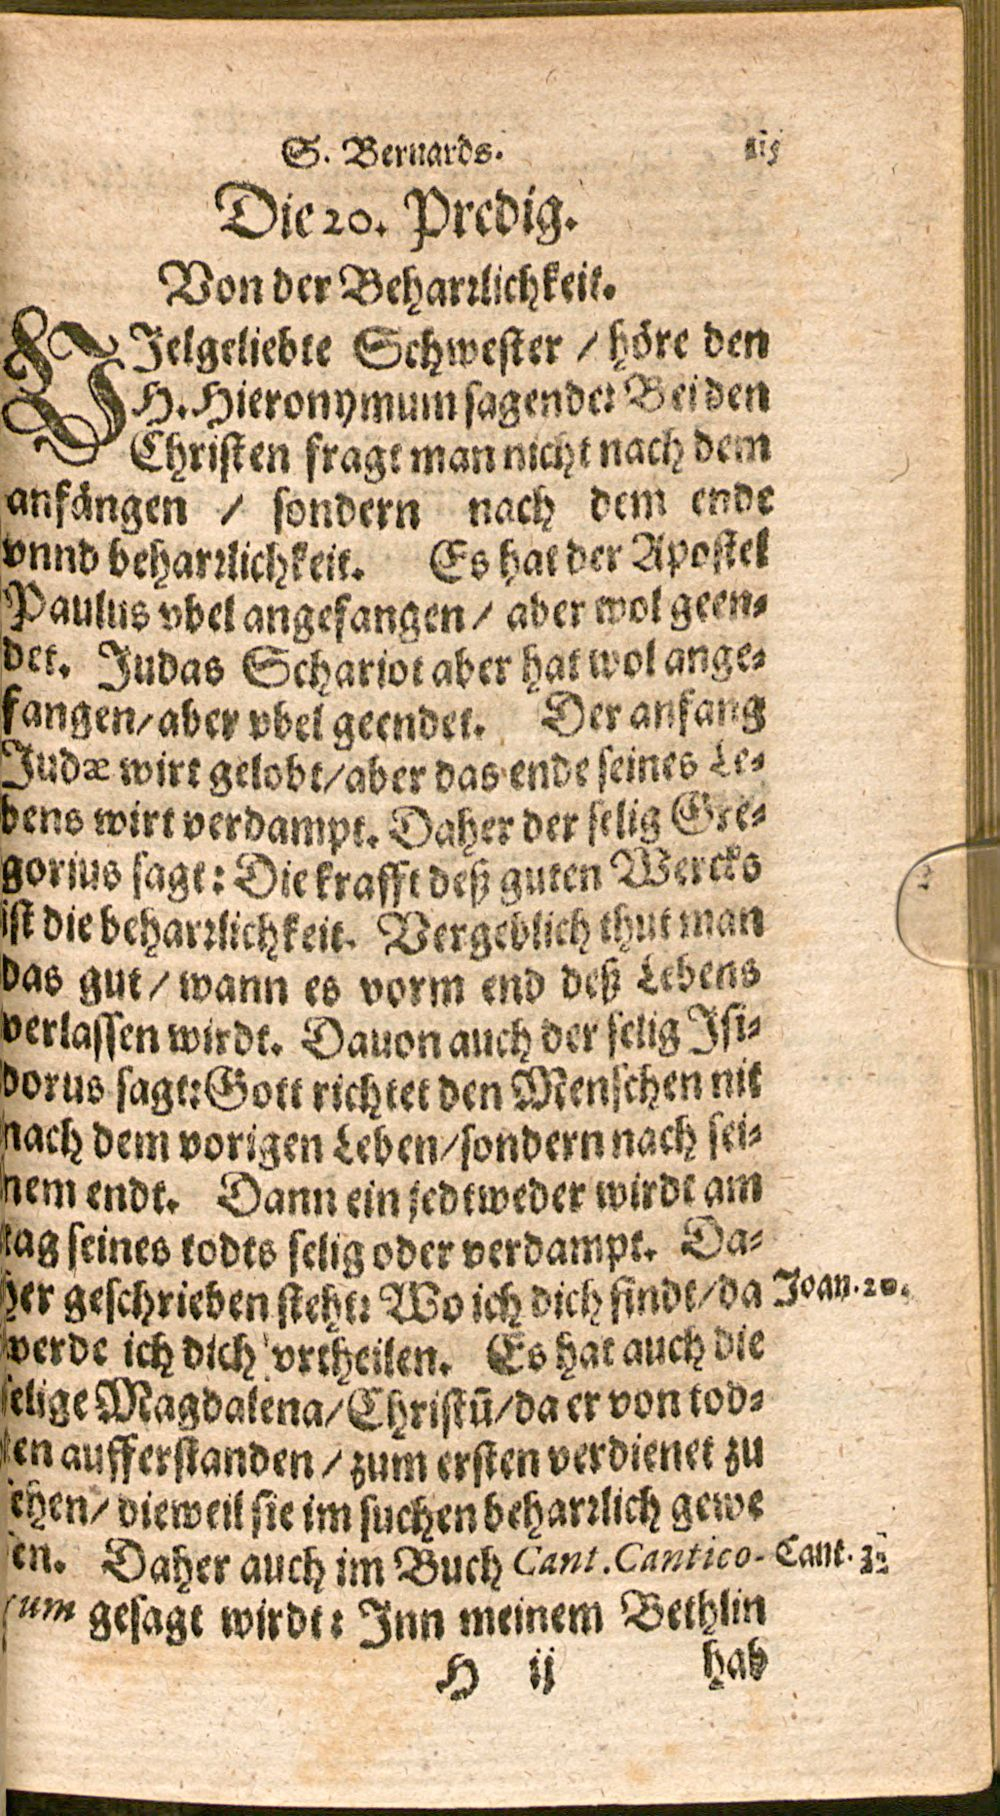 S. Bernards.
Die 20. Predig.
Von der Beharrlichkeit.
VIelgeliebte Schwester / höre den
H. Hieronymum sagende: Bei den
Christen fragt man nicht nach dem
anfängen / sondern nach dem ende
vnnd beharrlichkeit. Es hat der Apostel
Paulus vbel angefangen / aber wol geen-
det. Judas Schariot aber hat wol ange-
fangen / aber vbel geendet. Der anfang
Judæ wirt gelobt / aber das ende seines Le-
bens wirt verdampt. Daher der selig Gre-
gorius sagt: Die krafft deß guten Wercks
ist die beharrlichkeit. Vergeblich thut man
das gut / wann es vorm end deß Lebens
verlassen wirdt. Dauon auch der selig Isi-
dorus sagt: Gott richtet den Menschen nit
nach dem vorigen Leben / sondern nach sei-
nem endt. Dann ein jedtweder wirdt am
tag seines todts selig oder verdampt. Da-
her geschrieben steht: Wo ich dich findt / da Joan. 20.
werde ich dich vrtheilen. Es hat auch die
selige Magdalena / Christū / da er von tod-
ten aufferstanden / zum ersten verdienet zu
sehen / dieweil sie im suchen beharrlich gewe
sen. Daher auch im Buch Cant. Cantico- Cant. 3.
rum gesagt wirdt: Inn meinem Bethlin
H ij hab